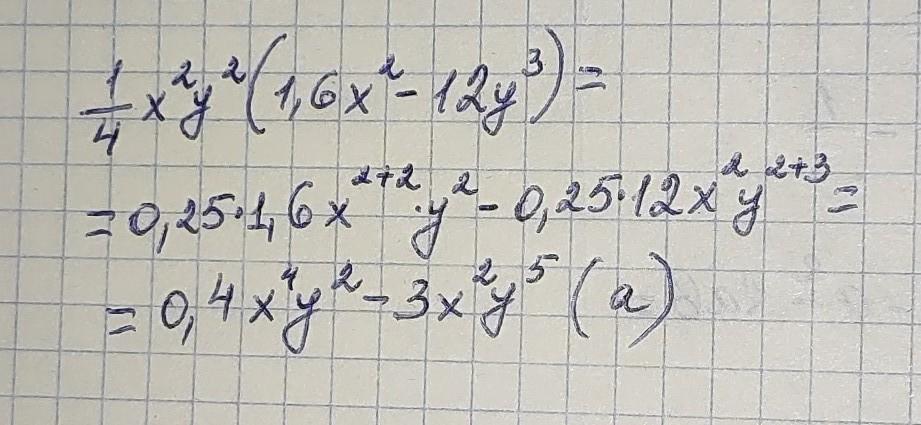 1/4 x²y²(1,6x² - 12y³) =
= 0,25·1,6x²⁺²·y² - 0,25·12x²y²⁺³ =
= 0,4x⁴y² - 3x²y⁵ (a)